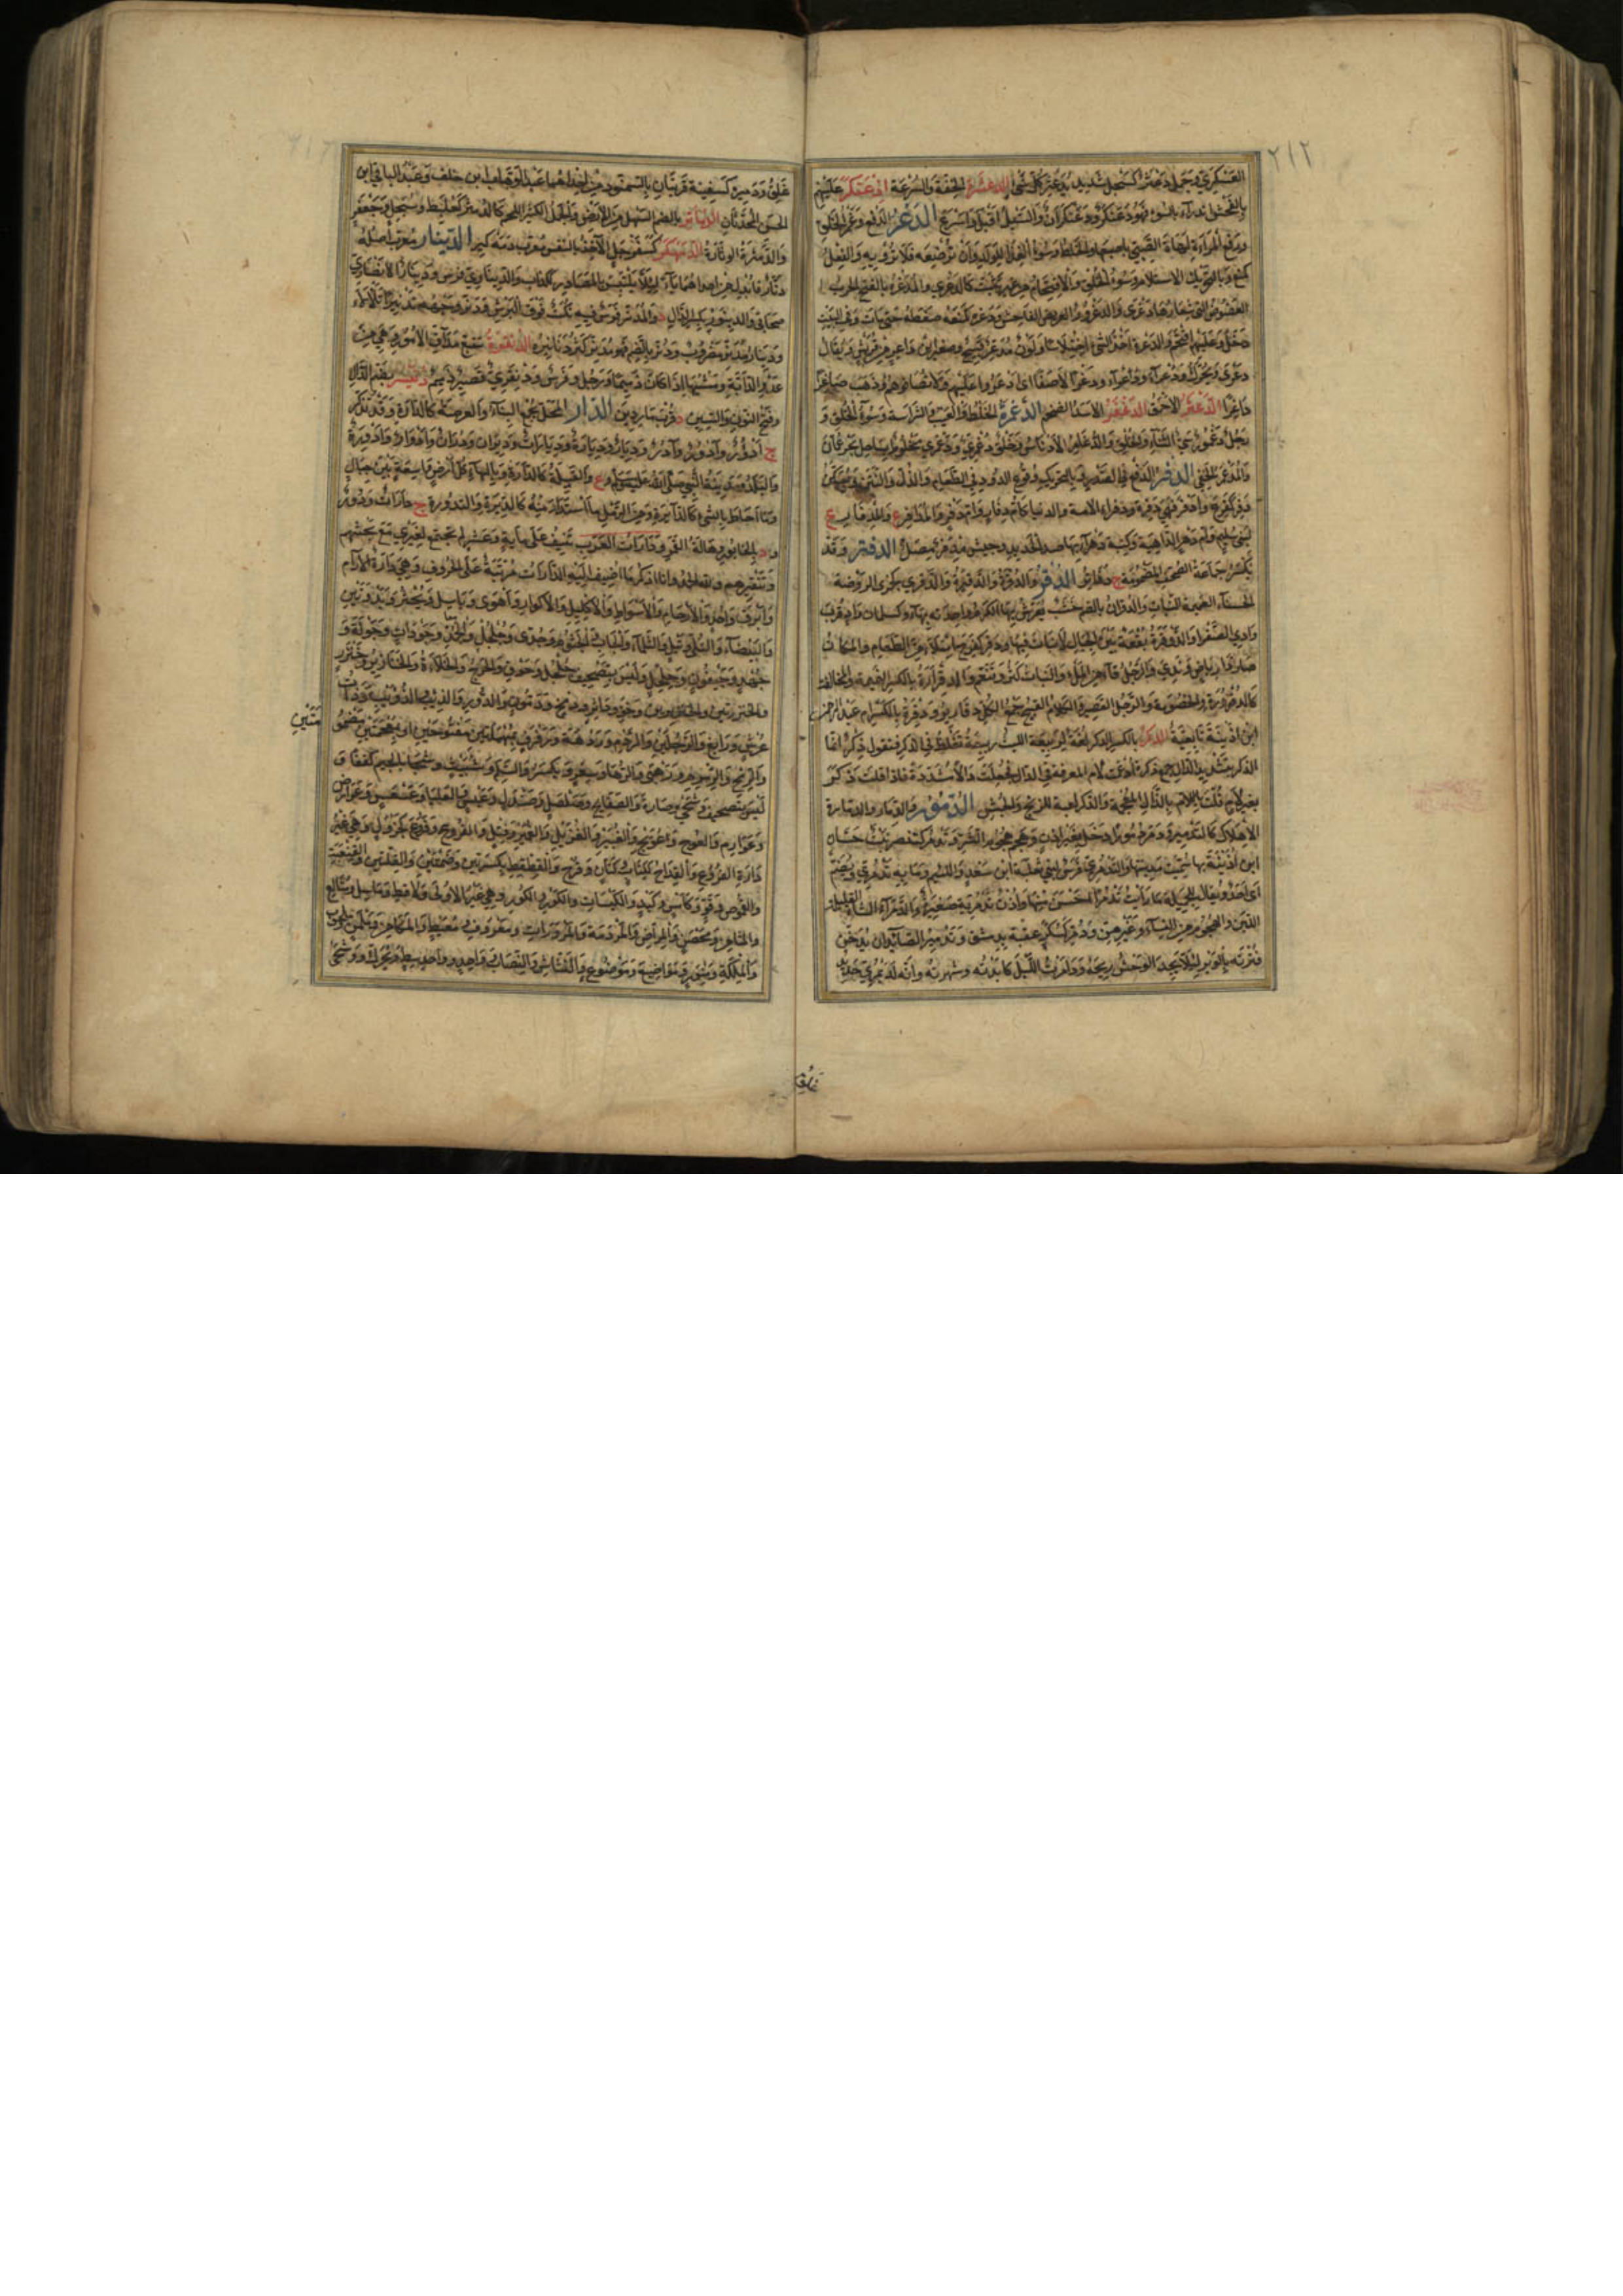 ٢١٢
العسكري وجمل دعثر كسبحل شديد يدعثر كل شيء الدعشرة الخفة والسرعة ادعنكر عليهم
بالفحش اندرأ بالسوء فهو دعنكر ودعنكران والسيل اقبل واسرع الدغر الدفع وغمز الحلق
ورفع المراة لهاة الصبي باصبعها والخلط وسوء الغذاء للولد وان ترضعه فلا ترويه والفعل
كمنع وبالتحريك الاستلام وسوء الخلق والاقتحام من غير تثبت كالدغرى والمدغرة بالفتح الحرب
العضوض التي شعارها دغرى والدغرور العريض الفاحش ودغره كمنعه ضغطه حتى مات وفي البيت
دخل وعليهم اقتحم والدغرة اخذ الشيء اختلاسا ولون مدغر قبيح وصغير بن داغر من قريش ويقال
دغرى ويحرك ودغراء ودغراء ودغرا لا صفا اي ادغروا عليهم ولا تصافوهم وذهب صاغرا
داغرا الدغفر الاحمق الدغفر الاسد الضخم الدغمرة الخلط والعيب والشراسة وسوء الخلق و
رجل دغمور سيئ الثناء والخلق والدغامر الادناس وخلق دغمري ودغمري مخلوط
والمدغمر الخفي الدفر الدفع في الصدر وبالتحريك وقوع الدود في الطعام والذل والنتن ويسكن
دفر كفرح وادفر فهي دفرة ودفراء الامة والدنيا كام دفار وام دفر والمدافر ع والمدفار ع
لبني سليم وام دفر الداهية وكتيبة دفراء بها صدا الحديد وجيش مدفر مصل الدفتر وقد
تكسر جماعة الصحف المضمومة ج دفاتر الدقر والدقرة والدقيرة والدقرى كجزى الروضة
الحسناء العميمة النبات والدقران بالضم خشب يعرش بها الكرم واحدته بهاء وكسلمان واد قرب
وادي الصفرا والدوقرة بقعة بين الجبال لا نبات فيها ودقر كفرح امتلا من الطعام والمكان
صار ذا رياض وندي والرجل قاء من الملء والنبات كثر وتنعم والدقرارة بالكسر النميمة والمخالفة
كالدقرورة والخصومة والرجل القصير والكلام القبيح جمع الكل دقارير ودقرة بالكسر ام عبد الرحمن
ابن اذينة تابعية الدكر بالكسر الذكر لغة لربيعة الليث ربيعة تغلط في الذكر فتقول دكر انما
الدكر بتشديد الدال جمع ذكرة ادغمت لام المعرفة في الدال فجعلت دالا مشددة فاذا قلت دكر
بغير لام قلت باللام بالذال المعجمة والدكر لعبة للزنج والحبش الدمور والدمار والدمارة
الاهلاك كالتدمير ودمر دمورا دخل بغير اذن وهجم هجوم الشر وتدمر كتنصر بنت حسان
ابن اذينة بها سميت مدينتها والتدمري فرس لبني ثعلبة ابن سعد واللئيم وما به تدمري ويضم
اي احد ويقال للجميلة ما رايت تدمريا احسن منها واذن تدمرية صغيرة والدمراء الشاة القليلة
اللبن والهجوم من النساء وغيرهن ودمر كسكر عقبة بدمشق وتدمير الصائد ان يدخن
قترته بالوبر لئلا يجد الوحش ريحه ودامرت الليل كابدته وسهرته وانه لدمري حديد
غلق
غلق ودميرة كسفينة قريتان بالسمنودية من احداهما عبد الوهاب ابن خلف وعبد الباقي ابن
الحسن المحدثان الدماثر بالضم السهل من الارض والجمل الكثير اللحم كالدمثر كعلبط وسبحل وجعفر
والدمثرة الوثارة الدمهكر كسفرجل الآخذ بالنفس معرب دمه كير الدينار معرب اصله
دنار فابدل من احداهما ياء لئلا يلتبس بالمصادر كالكذاب والديناري فرس ودينار الانصاري
صحابي والدينور بكسر الدال د والمدنر فرس فيه نكت فوق البرش وقد دنر وجهه تدنيرا تلألأ
ودينار مدنر مضروب ودنر بالضم فهو مدنر كثر دنانيره الدنقرة تتبع مداق الامور وهي من
عدو الدابة ومشيها اذا كان ذميما ورجل وفرس ودنقري قصير دميم دنيسر بضم الدال
وفتح النون والسين د قرب ماردين الدار المحل يجمع البناء والعرصة كالدارة وقد تذكر
ج ادؤر وادور وآدر وديار وديارة وديارات وديران ودوران وادوار وادورة
والبلد ومدينة النبي صلى الله عليه وسلم وع والقبيلة كالدارة وبالهاء كل ارض واسعة بين جبال
وما احاط بالشيء كالدائرة ومن الرمل ما استدار منه كالديرة والتدورة ج دارات ودور
ود بالخابور وهالة القمر ودارات العرب تنيف على مائة وعشر لم تجتمع لغيري مع بحثهم
وتنقيرهم ولله الحمد وانا اذكر ما اضيف اليه الدارات مرتبة على الحروف وهي دارة الارام
وابرق واحد والارحام والاسواط والاكليل والاكوار واهوى وباسل وبحثر وبدوتين
والبيضاء والتلي وتيل والثلماء والجاب والجثوم وجدى وجلجل والجلعب والجمد وجودات وجولة و
جهد وجيفون وحلحل وليس بتصحيف جلجل وحوق والخرج والخلاءة والخنازير وخنزر
والخنزرتين والخنزيرين وخو وداثر ودمخ ودمون والدور والذئب والذؤيب وذات
عرش ورابغ والرجلين والردم وردهة ورفرف بمهملتين مفتوحتين او بمعجمتين مضمومتين
متين
والرمح والرمرم ورهبى والرها وسعر ويكسر والسلم وشبيث وشجا بالجيم كقفا و
ليس بتصحيف وشحى وصارة والصفائح وصلصل وصندل وعبس والعلياء وعسعس وعوارض
وعوارم والعوج وعويج والغبير والغزيل والغمير وفتك والفروع وفروع كجرول وهي غير
دارة الفروع والقداح ككتاب كتان وقرح والقطقط بكسرتين وضمتين والقلتين والقنعبة
والقموص وقو وكامس وكبد والكبسات والكور والكور وهي غير الاولى ولاقط وماسل ومتالع
والمثامن ومحصن والمراض والمردمة والمرورات ومعروف ومعيط والمكامن ومكمن وملحوب
والملكة ومنور ومواضيع وموضوع والنشاش والنصاب وواحد وواسط ووشحى